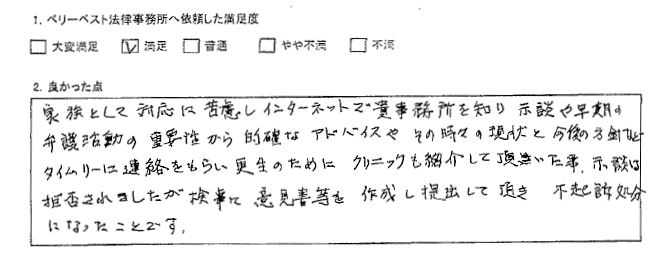 1. ベリーベスト法律事務所へ依頼した満足度
□ 大変満足 ☑ 満足 □ 普通 □ やや不満 □ 不満
2. 良かった点
家族として対応に苦慮しインターネットで貴事務所を知り示談や早期の
弁護活動の重要性から的確なアドバイスやその時々の現状と今後の方針など
タイムリーに連絡をもらい更生のためにクリニックも紹介して頂きいた事、示談は
拒否されましたが検事に意見書等を作成し提出して頂き不起訴処分
になったことです。